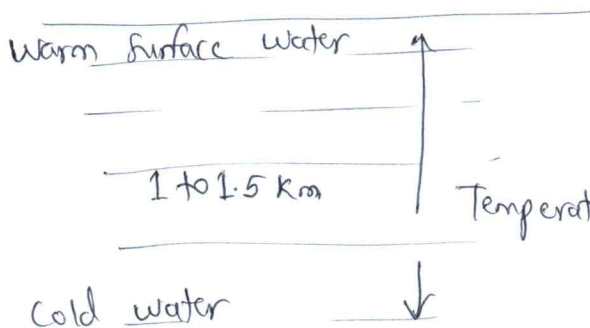 Warm Surface Water
1 to 1.5 Km
Temperat
Cold water